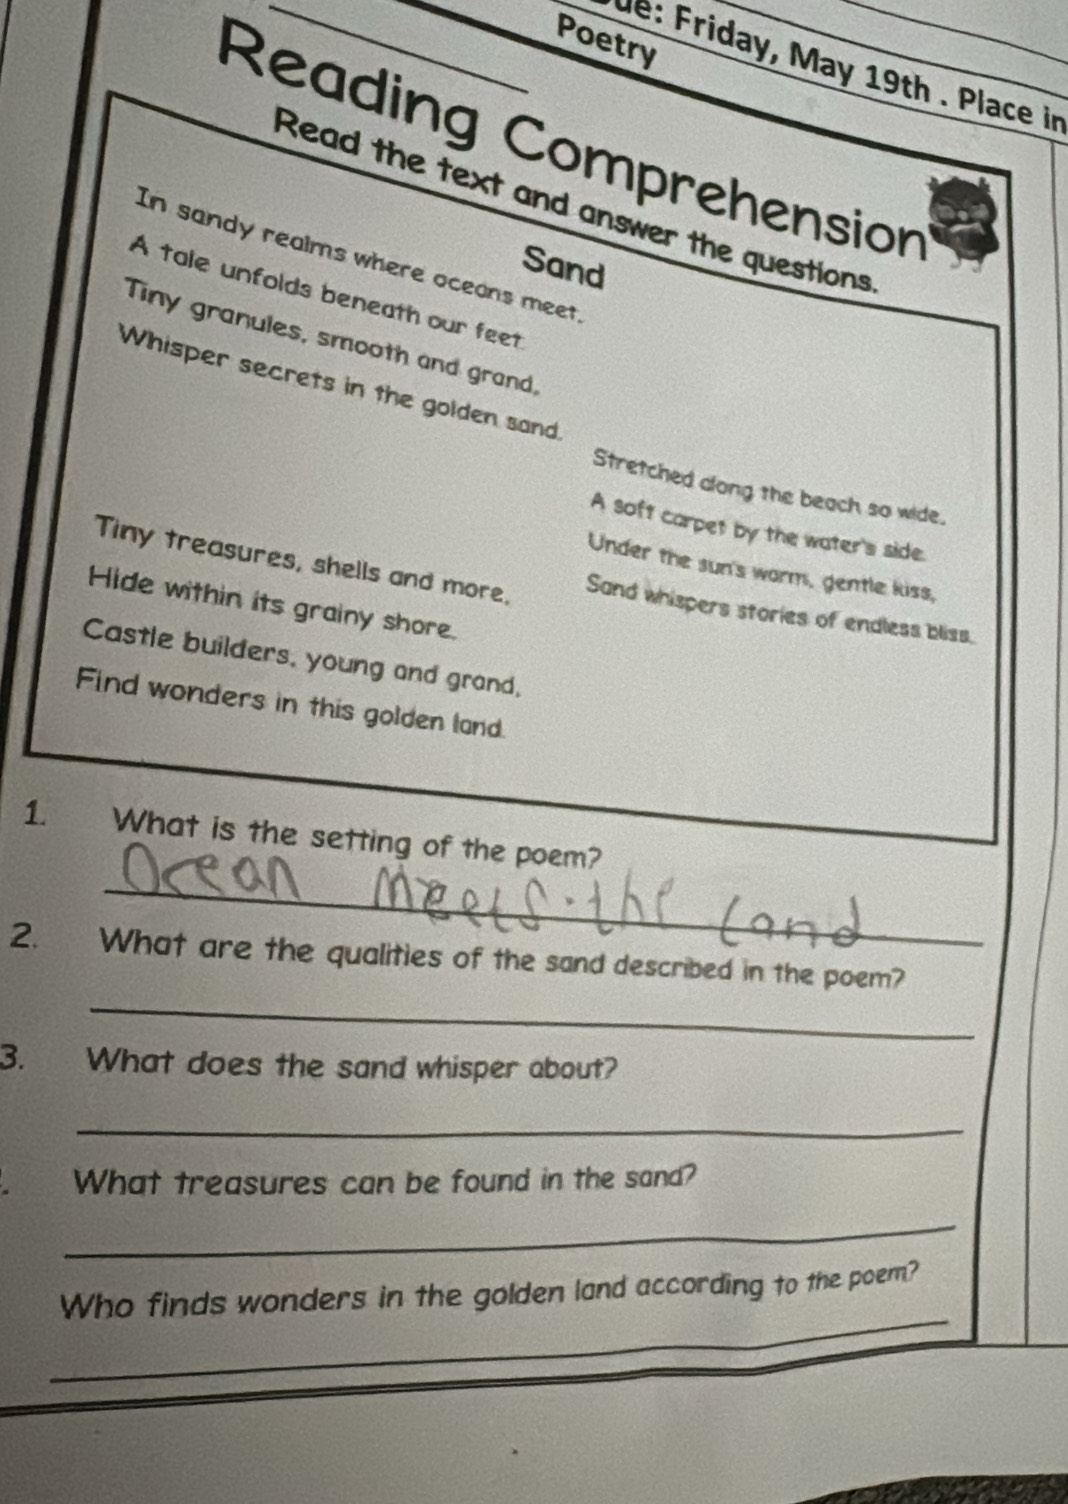 ue: Friday, May 19th . Place in
Poetry
Reading Comprehension
Read the text and answer the questions.
Sand
In sandy realms where oceans meet,
A tale unfolds beneath our feet.
Tiny granules, smooth and grand,
Whisper secrets in the golden sand.
Stretched along the beach so wide,
A soft carpet by the water's side.
Under the sun's warm, gentle kiss,
Sand whispers stories of endless bliss.
Tiny treasures, shells and more,
Hide within its grainy shore.
Castle builders, young and grand,
Find wonders in this golden land.
1. What is the setting of the poem?
Ocean Meets the land
2. What are the qualities of the sand described in the poem?
3. What does the sand whisper about?
. What treasures can be found in the sand?
Who finds wonders in the golden land according to the poem?